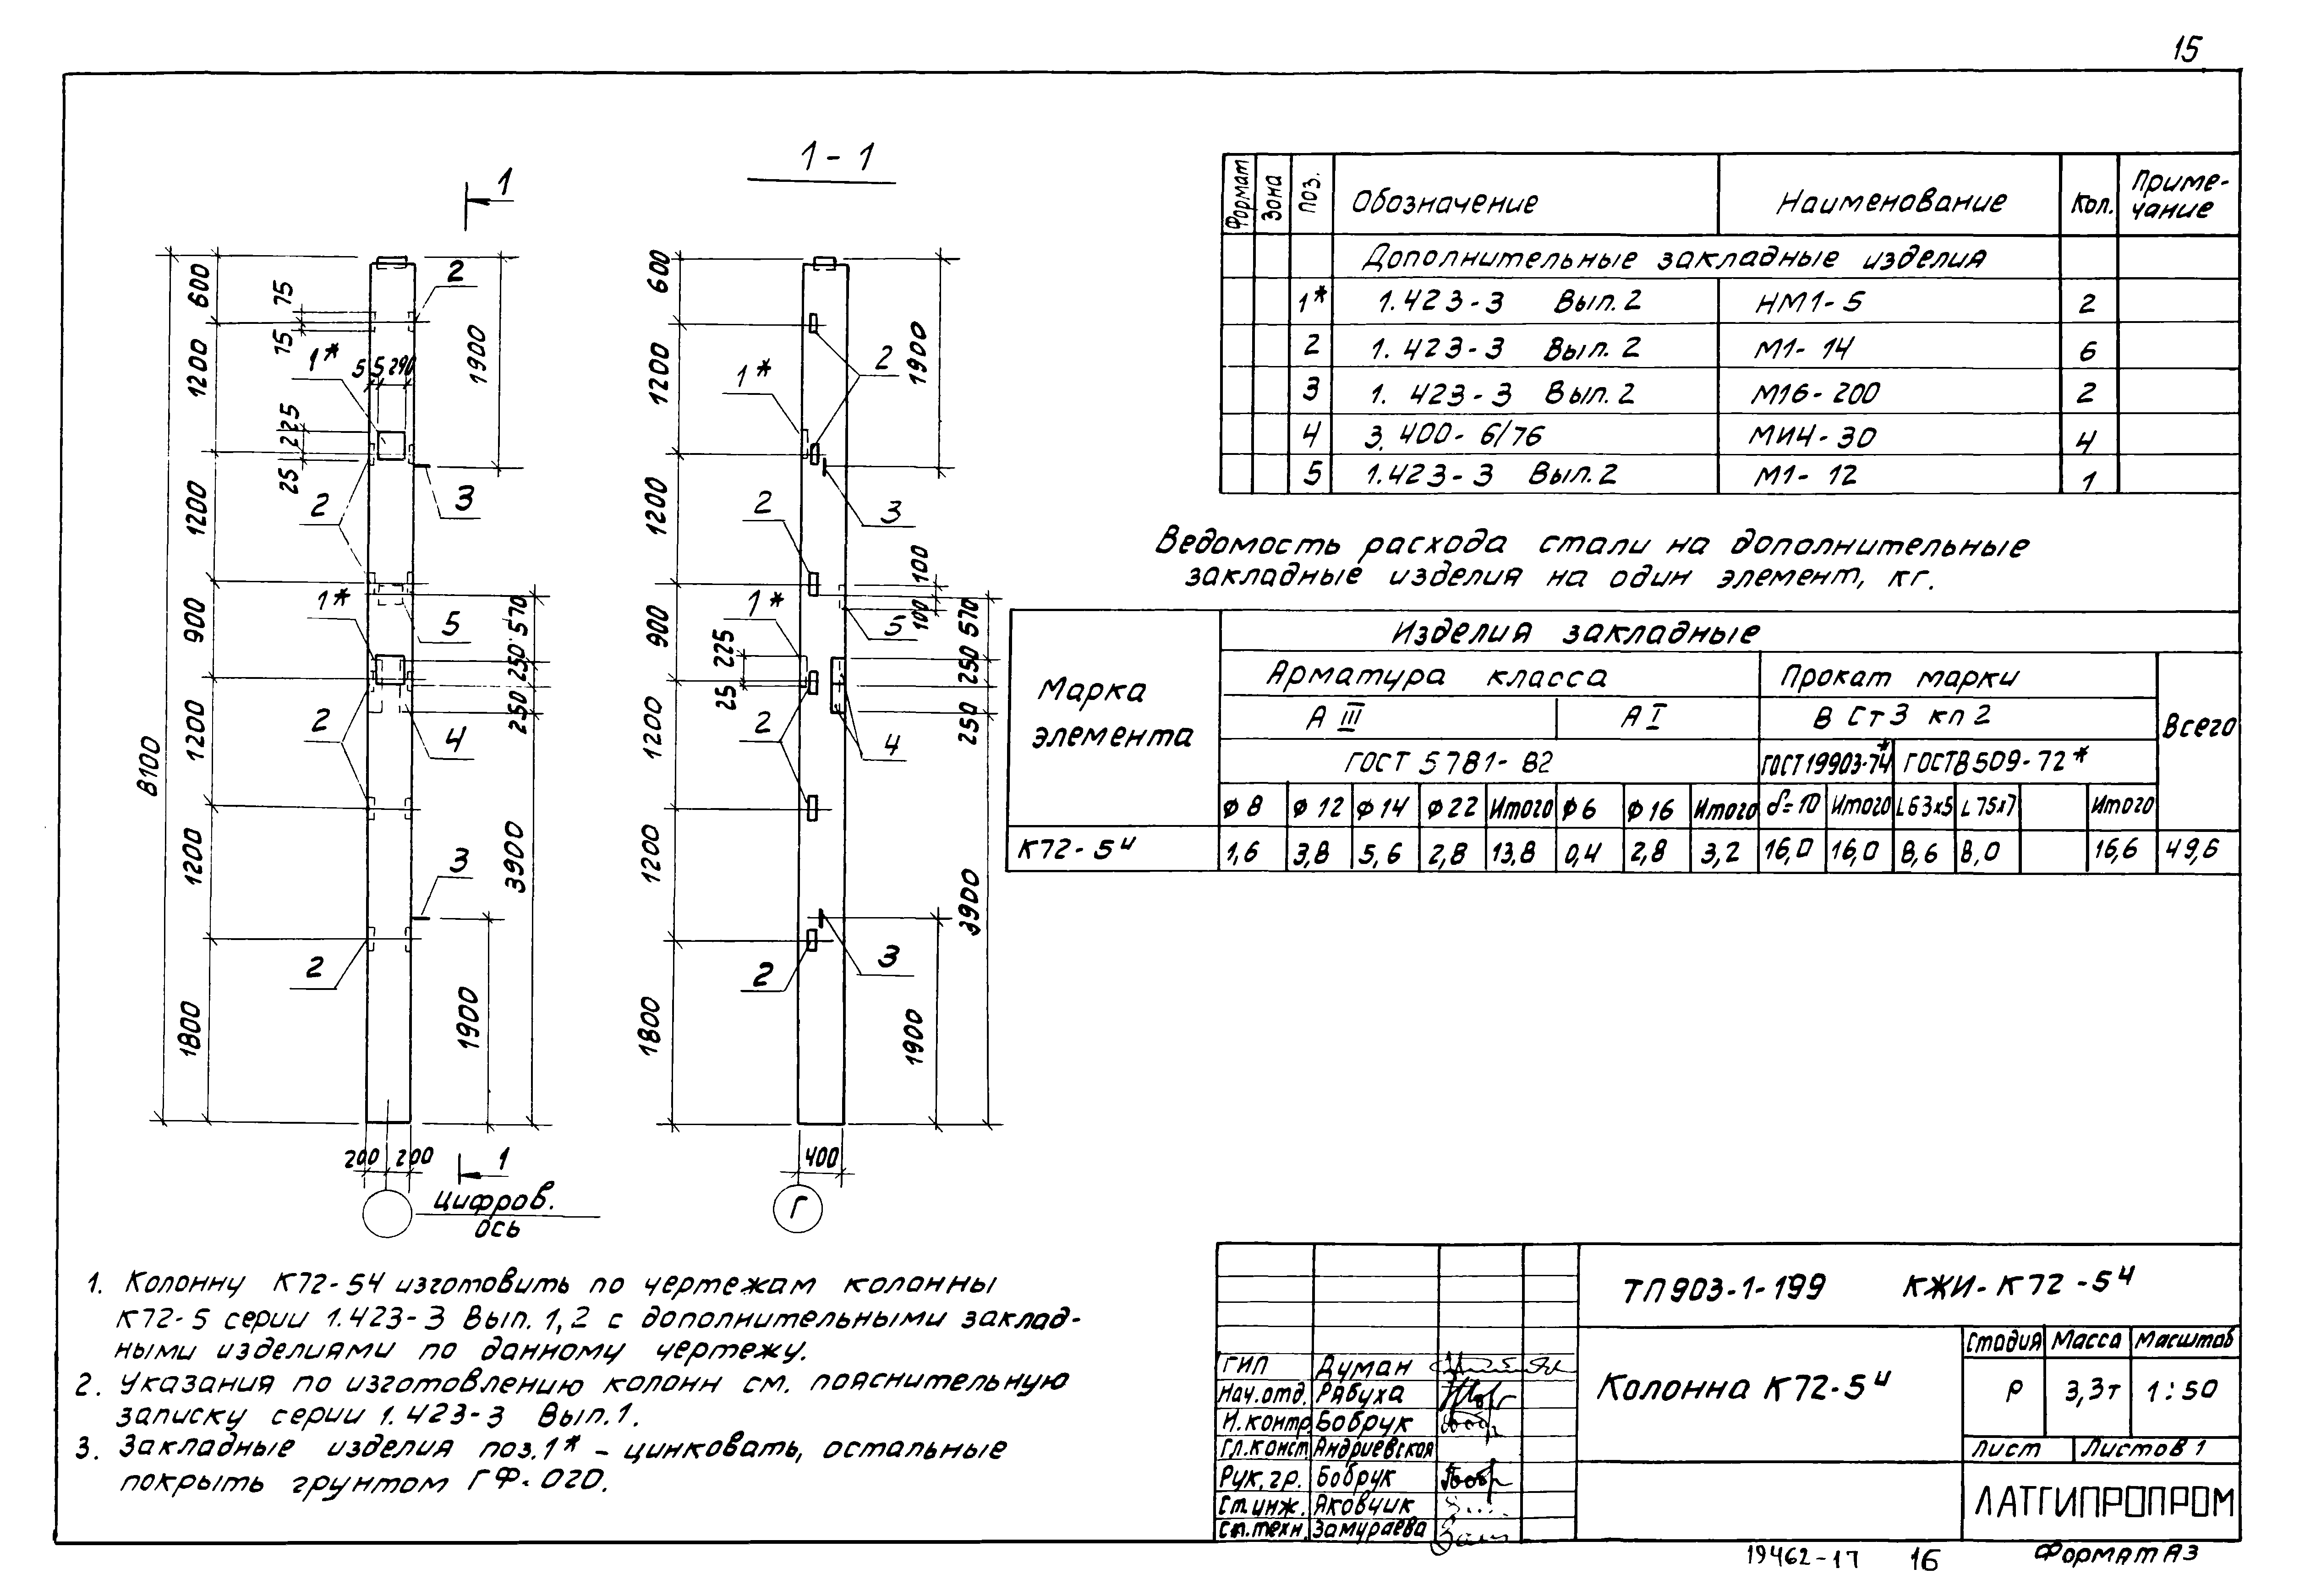 15
1
1 - 1
2
600
75
75
1200
1*
5
5
290
1900
225
25
2
3
1200
1*
5
900
570
250
250
2
4
8100
1200
3900
1200
3
2
1900
1800
200
200
1
цифров.
ось
600
1200
2
1900
1*
2
3
1200
100
1*
100
570
5
900
225
25
250
2
4
250
1200
3900
1200
3
2
1800
1900
400
Г
Формат Зона Поз. Обозначение Наименование Кол. Приме-
чание
Дополнительные закладные изделия
1* 1.423-3 Вып.2 НМ1-5 2
2 1.423-3 Вып.2 М1-14 6
3 1.423-3 Вып.2 М16-200 2
4 3.400-6/76 МИ4-30 4
5 1.423-3 Вып.2 М1-12 1
Ведомость расхода стали на дополнительные
закладные изделия на один элемент, кг.
Марка
элемента
Изделия закладные
Арматура класса Прокат марки
А III А I В Ст3 кп2 Всего
ГОСТ 5781-82 ГОСТ19903-74* ГОСТ8509-72*
Ф8 Ф12 Ф14 Ф22 Итого Ф6 Ф16 Итого δ=10 Итого L63х5 L75х7 Итого
К72-5ч 1,6 3,8 5,6 2,8 13,8 0,4 2,8 3,2 16,0 16,0 8,6 8,0 16,6 49,6
1. Колонну К72-5ч изготовить по чертежам колонны
К72-5 серии 1.423-3 Вып.1,2 с дополнительными заклад-
ными изделиями по данному чертежу.
2. Указания по изготовлению колонн см. пояснительную
записку серии 1.423-3 Вып.1.
3. Закладные изделия поз.1* - цинковать, остальные
покрыть грунтом ГФ-020.
ТП903-1-199 КЖИ-К72-5ч
Колонна К72-5ч
Стадия Масса Масштаб
Р 3,3т 1:50
Лист Листов 1
ЛАТГИПРОПРОМ
ГИП Думан
Нач.отд. Рябуха
Н.контр. Бобрук
Гл.конст. Андриевская
Рук.гр. Бобрук
Ст.инж. Яковчик
Ст.техн. Замураева
19462-17 16 Формат А3